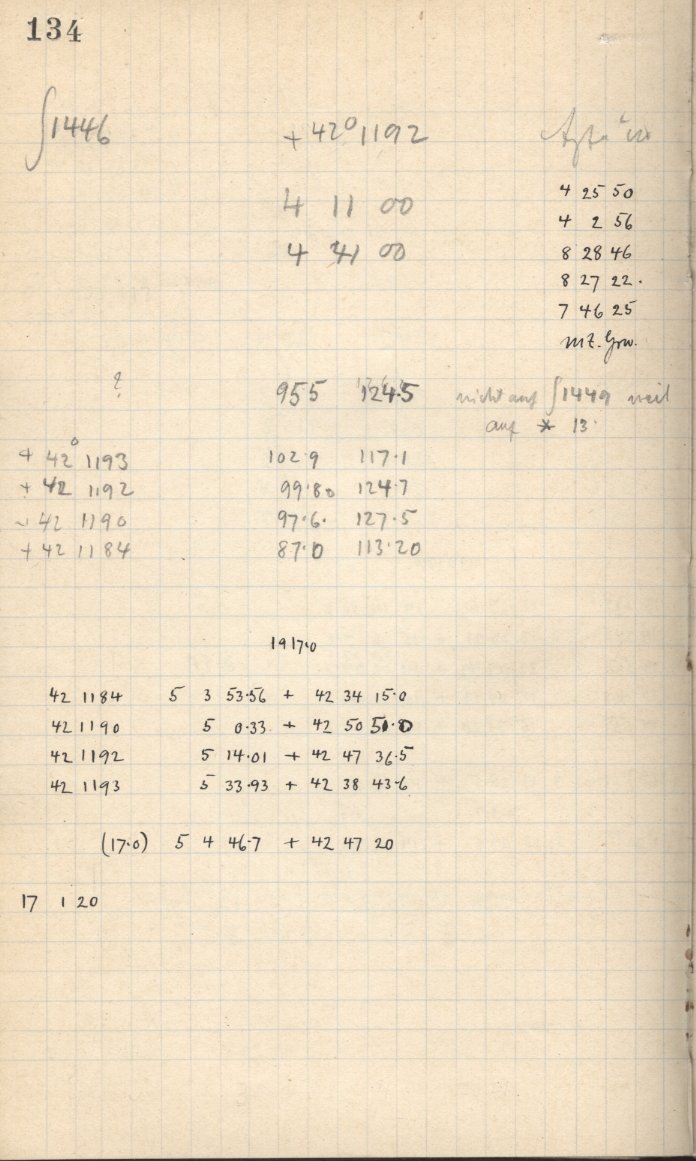 134
∫1446 + 42° 1192
4 11 00
4 41 00
4 25 50
4 2 56
8 28 46
8 27 22.
7 46 25
mZ. Grw.
? 95.5 124.5 nicht auf ∫1449 weil
auf * 13.
+ 42° 1193 102.9 117.1
+ 42 1192 99.80 124.7
+ 42 1190 97.6. 127.5
+ 42 1184 87.0 113.20
1917.0
42 1184 5 3 53.56 + 42 34 15.0
42 1190 5 0.33 + 42 50 51.8
42 1192 5 14.01 + 42 47 36.5
42 1193 5 33.93 + 42 38 43.6
(17.0) 5 4 46.7 + 42 47 20
17 1 20